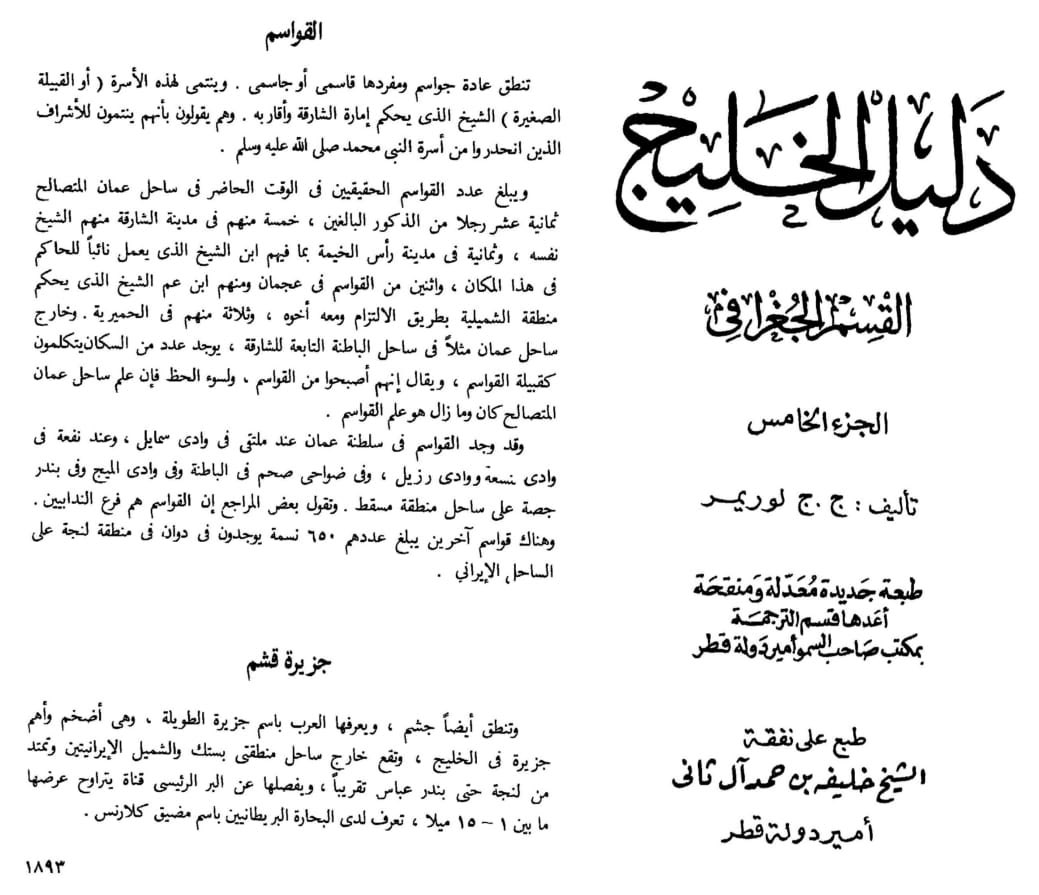 دليل الخليج
القسم الجغرافي
الجزء الخامس
تأليف : ج . ج لوريمر
طبعة جديدة معدلة ومنقحة
أعدها قسم الترجمة
بمكتب صاحب السمو أمير دولة قطر
طبع على نفقة
الشيخ خليفه بن حمد آل ثانى
أمير دولة قطر
القواسم
تنطق عادة جواسم ومفردها قاسمى أو جاسمى . وينتمى لهذه الأسرة ( أو القبيلة
الصغيرة ) الشيخ الذى يحكم إمارة الشارقة وأقاربه . وهم يقولون بأنهم ينتمون للأشراف
الذين انحدروا من أسرة النبى محمد صلى الله عليه وسلم .
ويبلغ عدد القواسم الحقيقيين فى الوقت الحاضر فى ساحل عمان المتصالح
ثمانية عشر رجلا من الذكور البالغين ، خمسة منهم فى مدينة الشارقة منهم الشيخ
نفسه ، وثمانية فى مدينة رأس الخيمة بما فيهم ابن الشيخ الذى يعمل نائباً للحاكم
فى هذا المكان ، واثنين من القواسم فى عجمان ومنهم ابن عم الشيخ الذى يحكم
منطقة الشميلية بطريق الالتزام ومعه أخوه ، وثلاثة منهم فى الحميرية . وخارج
ساحل عمان مثلاً فى ساحل الباطنة التابعة للشارقة ، يوجد عدد من السكان يتكلمون
كقبيلة القواسم ، ويقال إنهم أصبحوا من القواسم ، ولسوء الحظ فإن علم ساحل عمان
المتصالح كان وما زال هو علم القواسم .
وقد وجد القواسم فى سلطنة عمان عند ملتقى فى وادى سمايل ، وعند نفعة فى
وادى نسعة ووادى رزيل ، وفى ضواحى صحم فى الباطنة وفى وادى الميح وفى بندر
جصة على ساحل منطقة مسقط . وتقول بعض المراجع إن القواسم هم فرع الندابيين .
وهناك قواسم آخرين يبلغ عددهم ٦٥٠ نسمة يوجدون فى دوان، فى منطقة لنجة على
الساحل الإيراني .
جزيرة قشم
وتنطق أيضاً جشم ، ويعرفها العرب باسم جزيرة الطويلة ، وهى أضخم وأهم
جزيرة فى الخليج ، وتقع خارج ساحل منطقتى بستك والشميل الإيرانيتين وتمتد
من لنجة حتى بندر عباس تقريباً ، ويفصلها عن البر الرئيسى قناة يتراوح عرضها
ما بين ١ – ١٥ ميلا ، تعرف لدى البحارة البريطانيين باسم مضيق كلارنس .
١٨٩٣